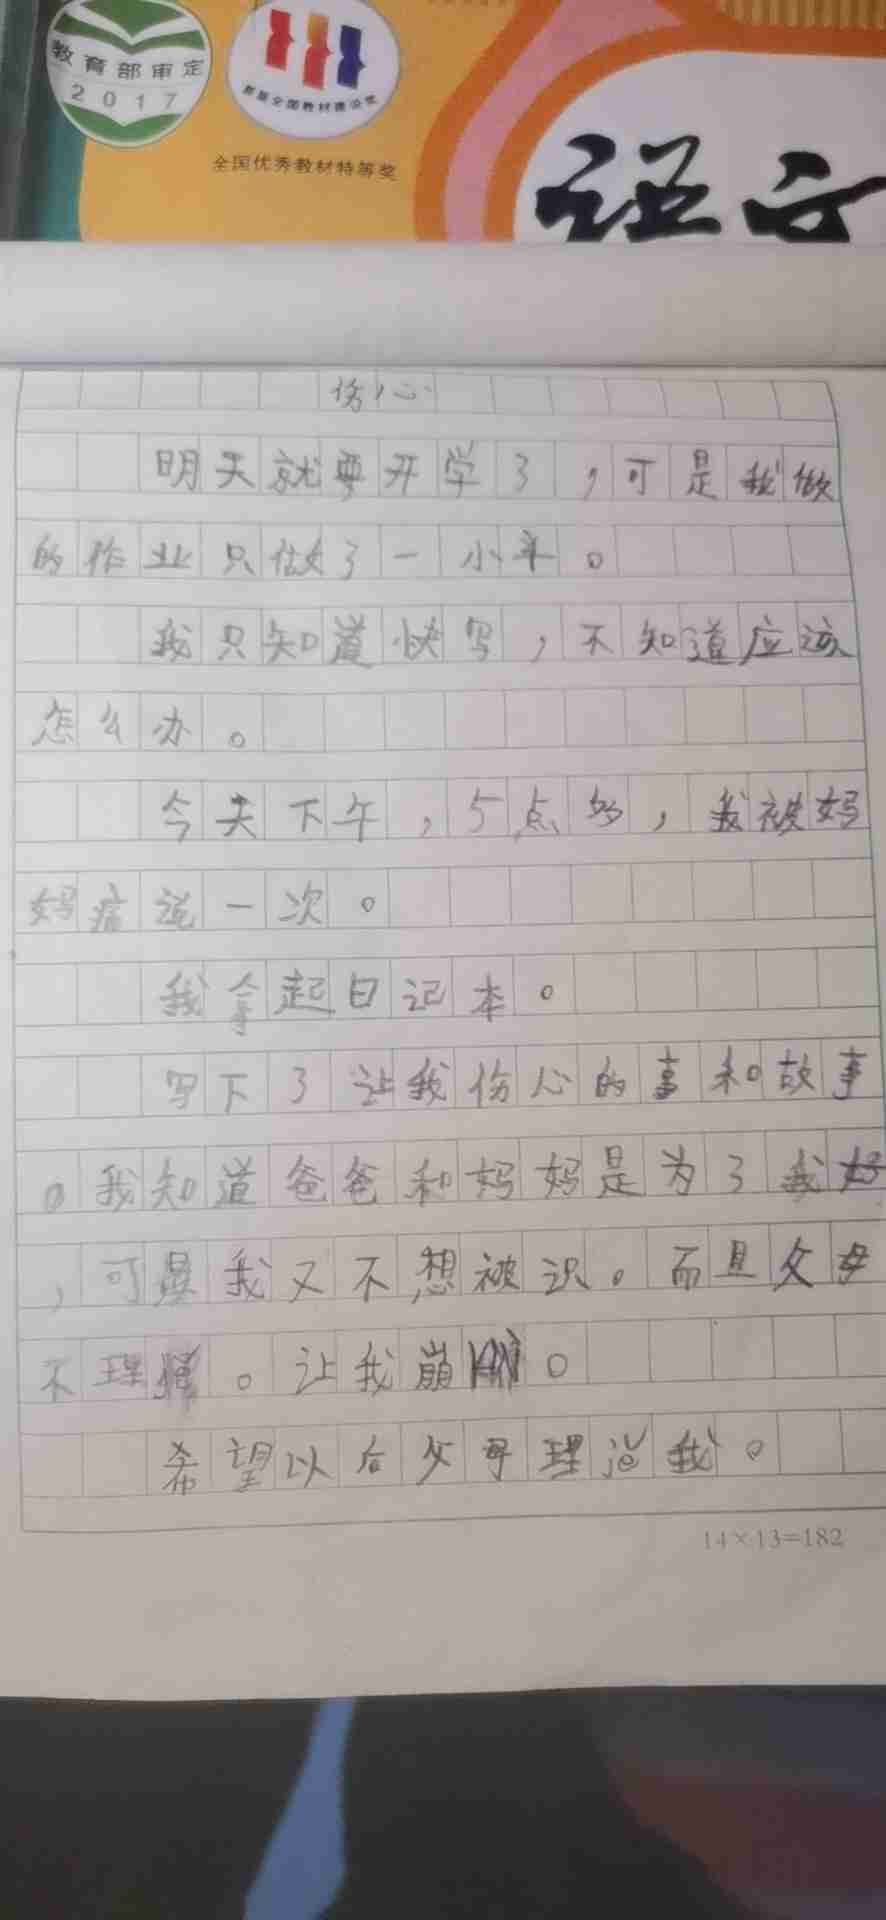 教育部审定
2017
首届全国教材建设奖
全国优秀教材特等奖
语文
伤心
明天就要开学了，可是我做
的作业只做了一小半。
我只知道快写，不知道应该
怎么办。
今天下午，5点多，我被妈
妈痛说一次。
我拿起日记本。
写下了让我伤心的事和故事
。我知道爸爸和妈妈是为了我好
，可是我又不想被识。而且父母
不理懂。让我崩。
希望以后父母理我。
14×13=182